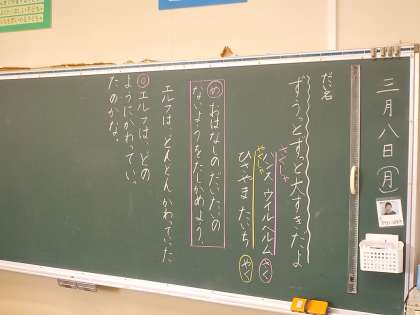 三月八日(月)
だい名
ずうっとずっと大すきだよ
さくしゃ
ハンス ウイルヘルム さく
やくしゃ
ひさやま たいち やく
め おはなしのだいたいの
ないようをたしかめよう。
エルフは、どんどんかわっていった
◎エルフは、どの
ようにかわってい
たのかな。